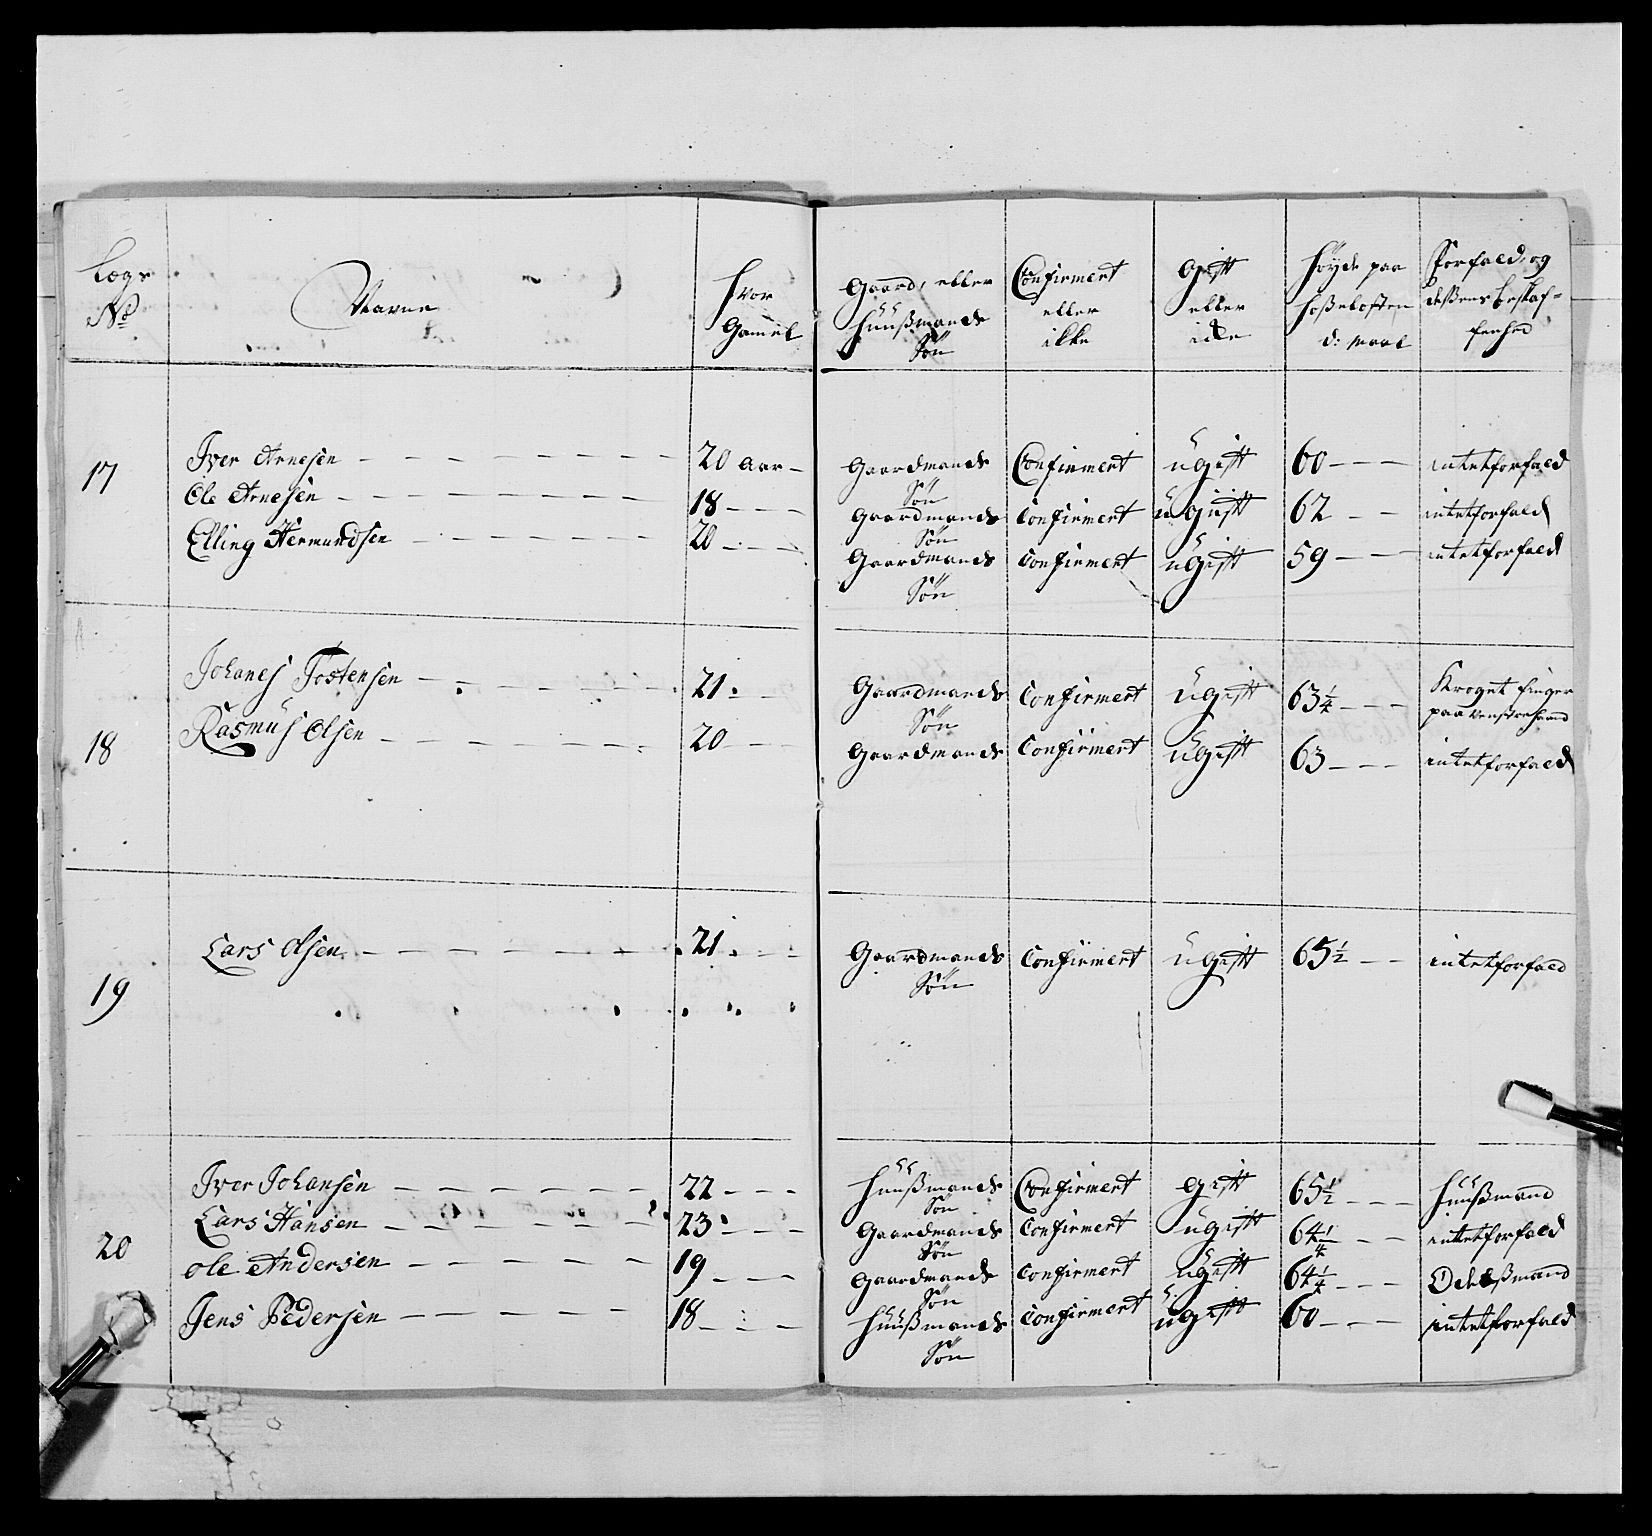 Lægs No | Navne | Hvor Gamel | Gaard, eller Huusmands Søn | Confirmert eller ikke | Gift eller icke | Høyde paa Hoseloften d: maal | Forfald, og deßens beskaffenhed
17 | Iver Arnesen | 20 aar | Gaardmands Søn | Confirmert | ugift | 60 | intet forfald
Ole Arnesen | 18 | Gaardmands Søn | Confirmert | ugiift | 62 | intet forfald
Elling Hermundsen | 20 | Gaardmands Søn | Confirmert | ugift | 59 | intet forfald
18 | Johanes Tostensen | 21 | Gaardmands Søn | Confirmert | ugift | 63 1/4 | Kroget finger paa venstre haand
Rasmus Olsen | 20 | Gaardmands | Confirmert | ugift | 63 | intet forfald
19 | Lars Olsen | 21 | Gaardmands Søn | Confirmert | ugift | 65 1/2 | intet forfald
20 | Iver Johansen | 22 | Huußmands Søn | Confirmert | gift | 65 1/2 | Huußmand
Lars Hansen | 23 | Gaardmands Søn | Confirmert | ugift | 64 1/4 | intet forfald
Ole Andersen | 19 | Gaardmands Søn | Confirmert | ugift | 64 1/4 | Odelßmand
Jens Pedersen | 18 | Huußmands Søn | Confirmert | ugift | 60 | intet forfald